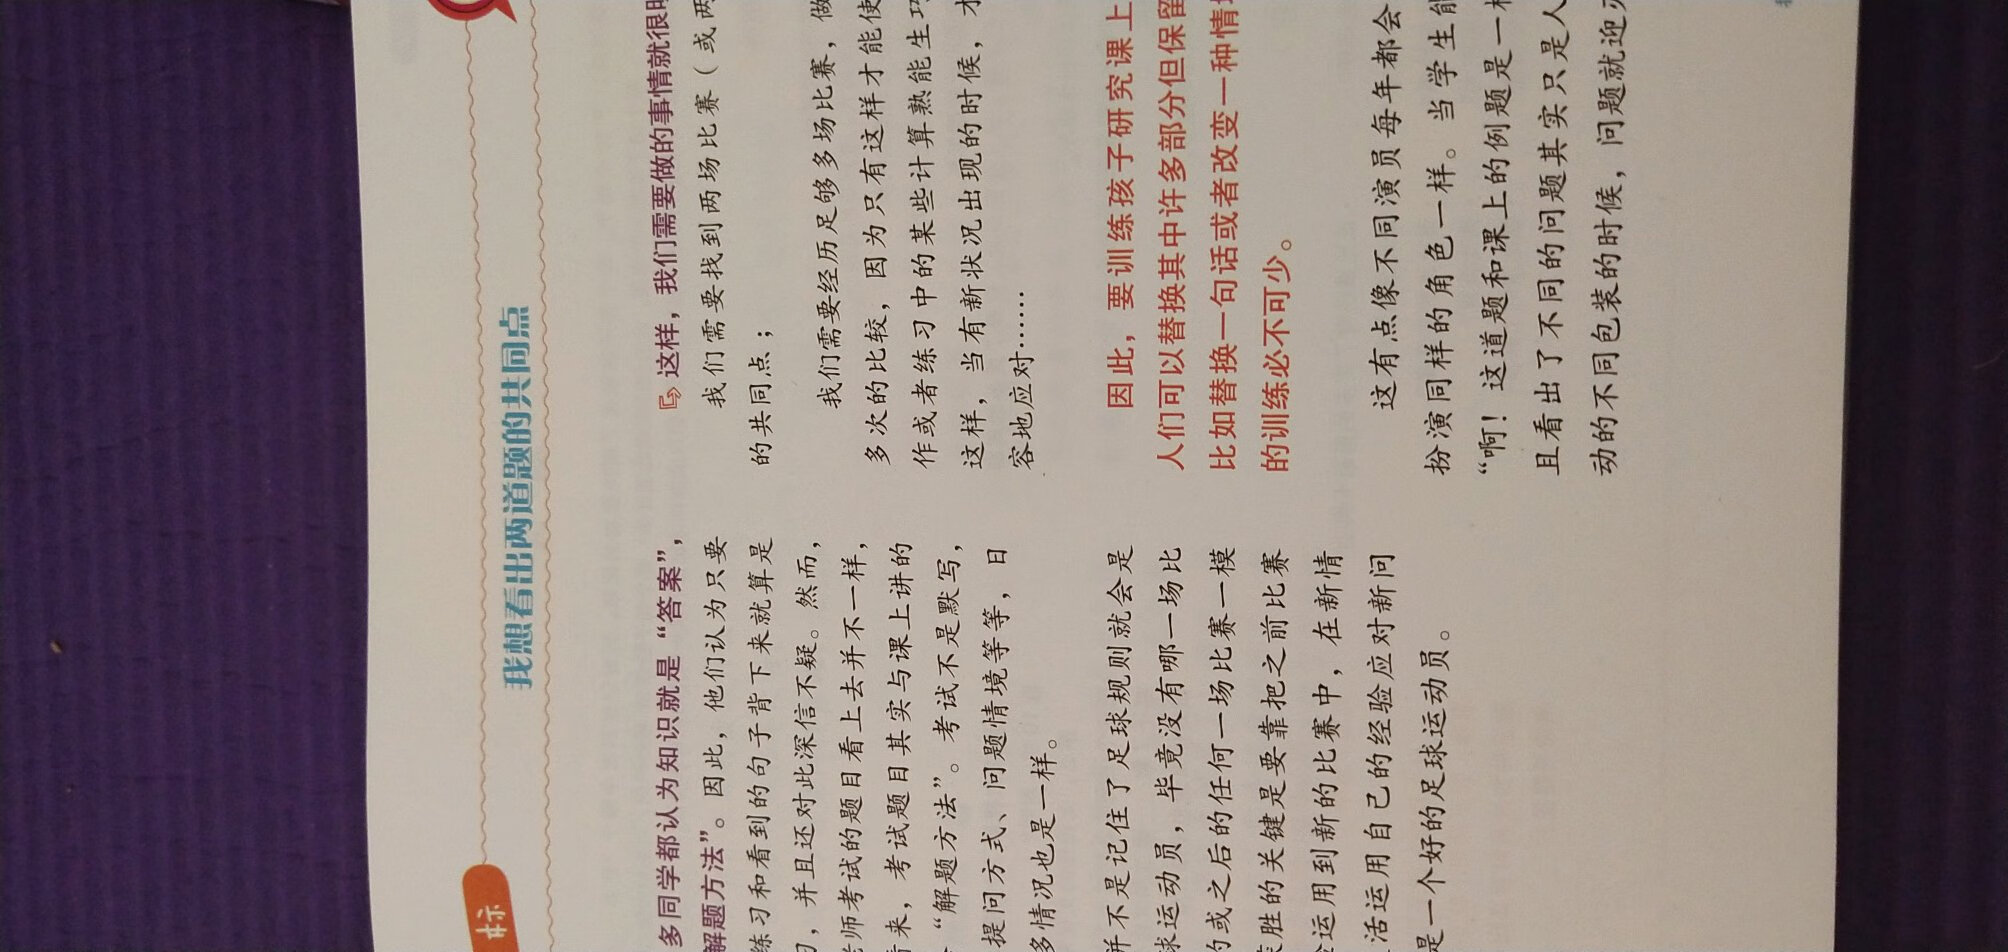 我想看出两道题的共同点
多同学都认为知识就是“答案”，
解题方法”。因此，他们认为只要
练习和看到的句子背下来就算是
，并且还对此深信不疑。然而，
老师考试的题目看上去并不一样，
看来，考试题目其实与课上讲的
“解题方法”。考试不是默写，
提问方式、问题情境等等，日
多情况也是一样。
并不是记住了足球规则就会是
球运动员，毕竟没有哪一场比
的或之后的任何一场比赛一模
获胜的关键是要靠把之前比赛
验运用到新的比赛中，在新情
活运用自己的经验应对新问
是一个好的足球运动员。
这样，我们需要做的事情就很明
我们需要找到两场比赛（或两
的共同点；
我们需要经历足够多场比赛，做
多次的比较，因为只有这样才能使
作或者练习中的某些计算熟能生巧
这样，当有新状况出现的时候，才
容地应对……
因此，要训练孩子研究课上
人们可以替换其中许多部分但保留
比如替换一句话或者改变一种情境
的训练必不可少。
这有点像不同演员每年都会
扮演同样的角色一样。当学生能
“啊！这道题和课上的例题是一样
且看出了不同的问题其实只是人
动的不同包装的时候，问题就迎刃